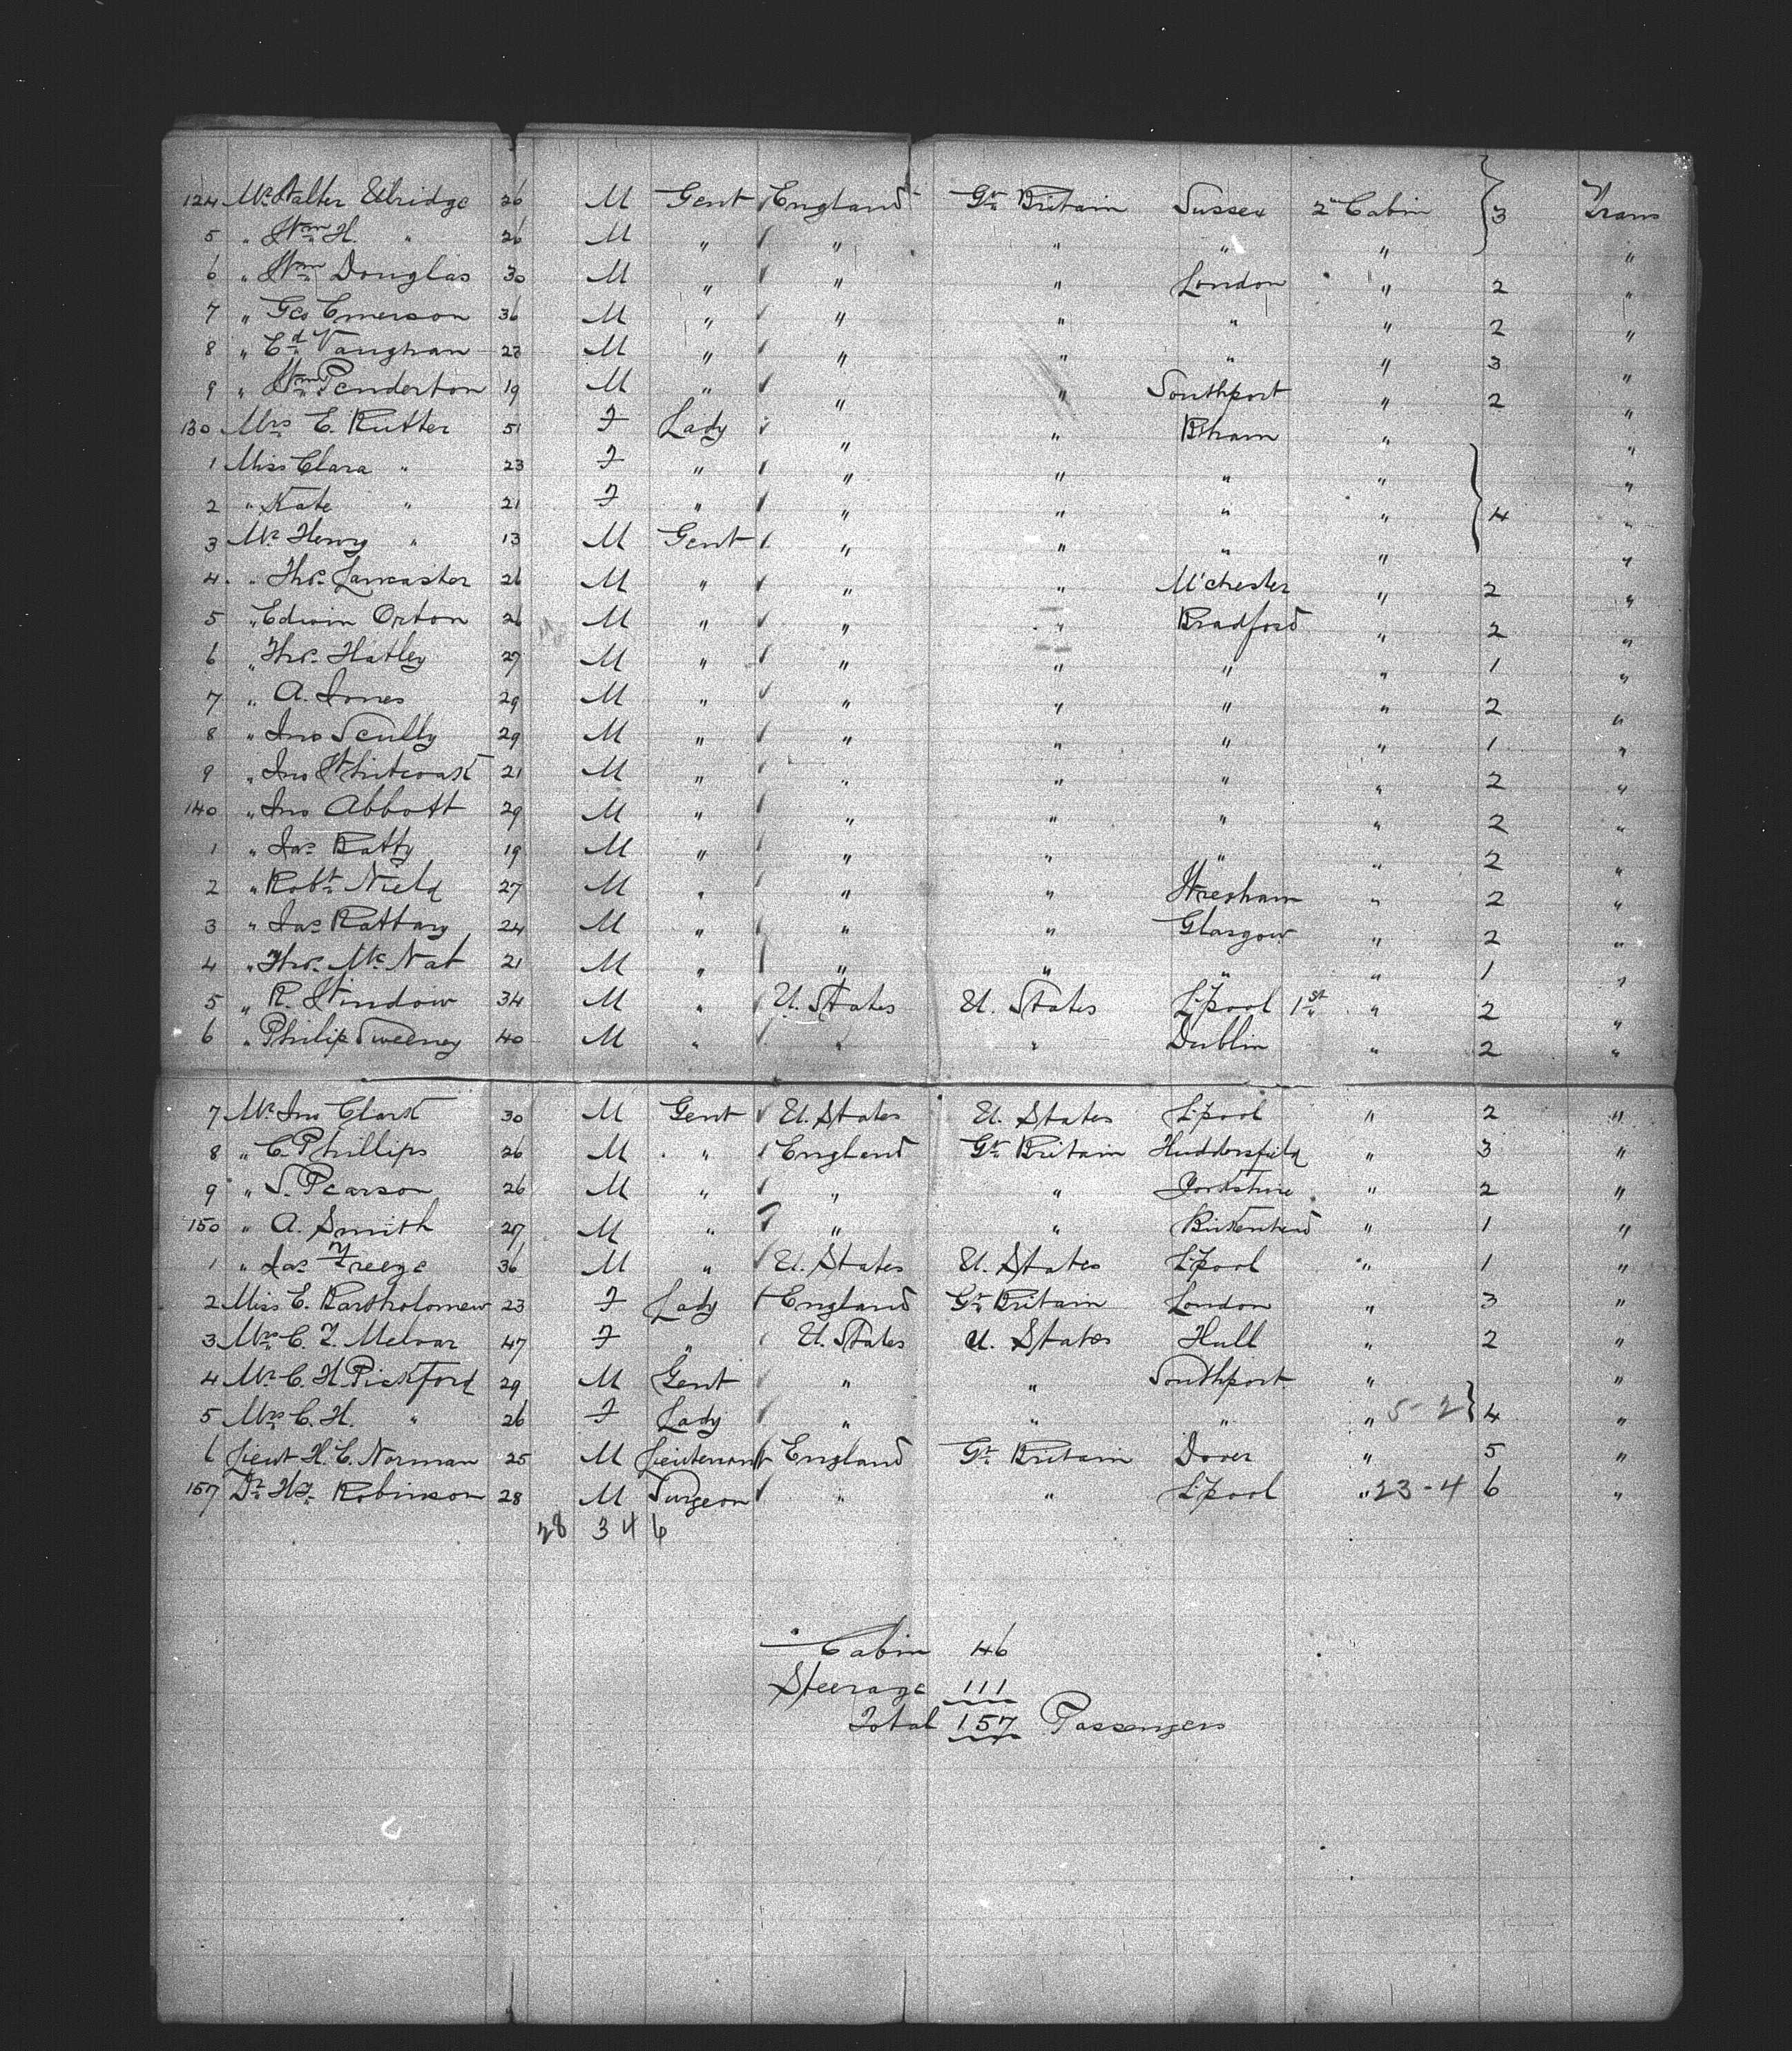 124 Mr. Walter Elridge 26 M Gent England Gt. Britain Sussex 2nd Cabin 3 Trans
5 " Wm H. " 26 M " " " " " "
6 " Wm Douglas 30 M " " " London " 2 "
7 " Geo Emerson 36 M " " " " " 2 "
8 " Ed. Vaughan 22 M " " " " " 3 "
9 " Wm Penderton 19 M " " " Southport " 2 "
130 Mrs E. Rutter 51 F Lady " " B'ham " "
1 Miss Clara " 23 F " " " " " "
2 " Kate " 21 F " " " " " 4 "
3 Mr. Henry " 13 M Gent " " " " "
4 " Thos. Lancaster 26 M " " " M'chester " 2 "
5 " Edwin Orton 26 M " " " Bradford " 2 "
6 " Thos. Hatley 27 M " " " " " 1 "
7 " A. Jones 29 M " " " " " 2 "
8 " Jno Scully 29 M " " " " " 1 "
9 " Jno Whitcoak 21 M " " " " " 2 "
140 " Jno Abbott 29 M " " " " " 2 "
1 " Jas Batty 19 M " " " " " 2 "
2 " Robt. Nield 27 M " " " Wrexham " 2 "
3 " Jas Rattary 24 M " " " Glasgow " 2 "
4 " Thos. Mc. Nat 21 M " " " " " 1 "
5 " R. Window 34 M " U. States U. States L'pool 1st " 2 "
6 " Philip Sweeney 40 M " " " Dublin " 2 "
7 Mr. Jno Clark 30 M Gent U. States U. States L'pool " 2 "
8 " C. Phillips 26 M " England Gt. Britain Huddersfield " 3 "
9 " S. Pearson 26 M " " " Yorkshire " 2 "
150 " A. Smith 27 M " " " Birkenhead " 1 "
1 " Jas Freeze 36 M " U. States U. States L'pool " 1 "
2 Miss E. Bartholomew 23 F Lady England Gt. Britain London " 3 "
3 Mrs C. F. Melvar 47 F " U. States U. States Hull " 2 "
4 Mr. C. H. Pickford 29 M Gent " " Southport " "
5 Mrs C. H. " 26 F Lady " " " " 5-2 4 "
6 Lieut H. C. Norman 25 M Lieutenant England Gt. Britain Dover " 5 "
157 Dr. Hy. Robinson 28 M Surgeon " " L'pool " 23-4 6 "
28 346
Cabin 46
Steerage 111
Total 157 Passengers